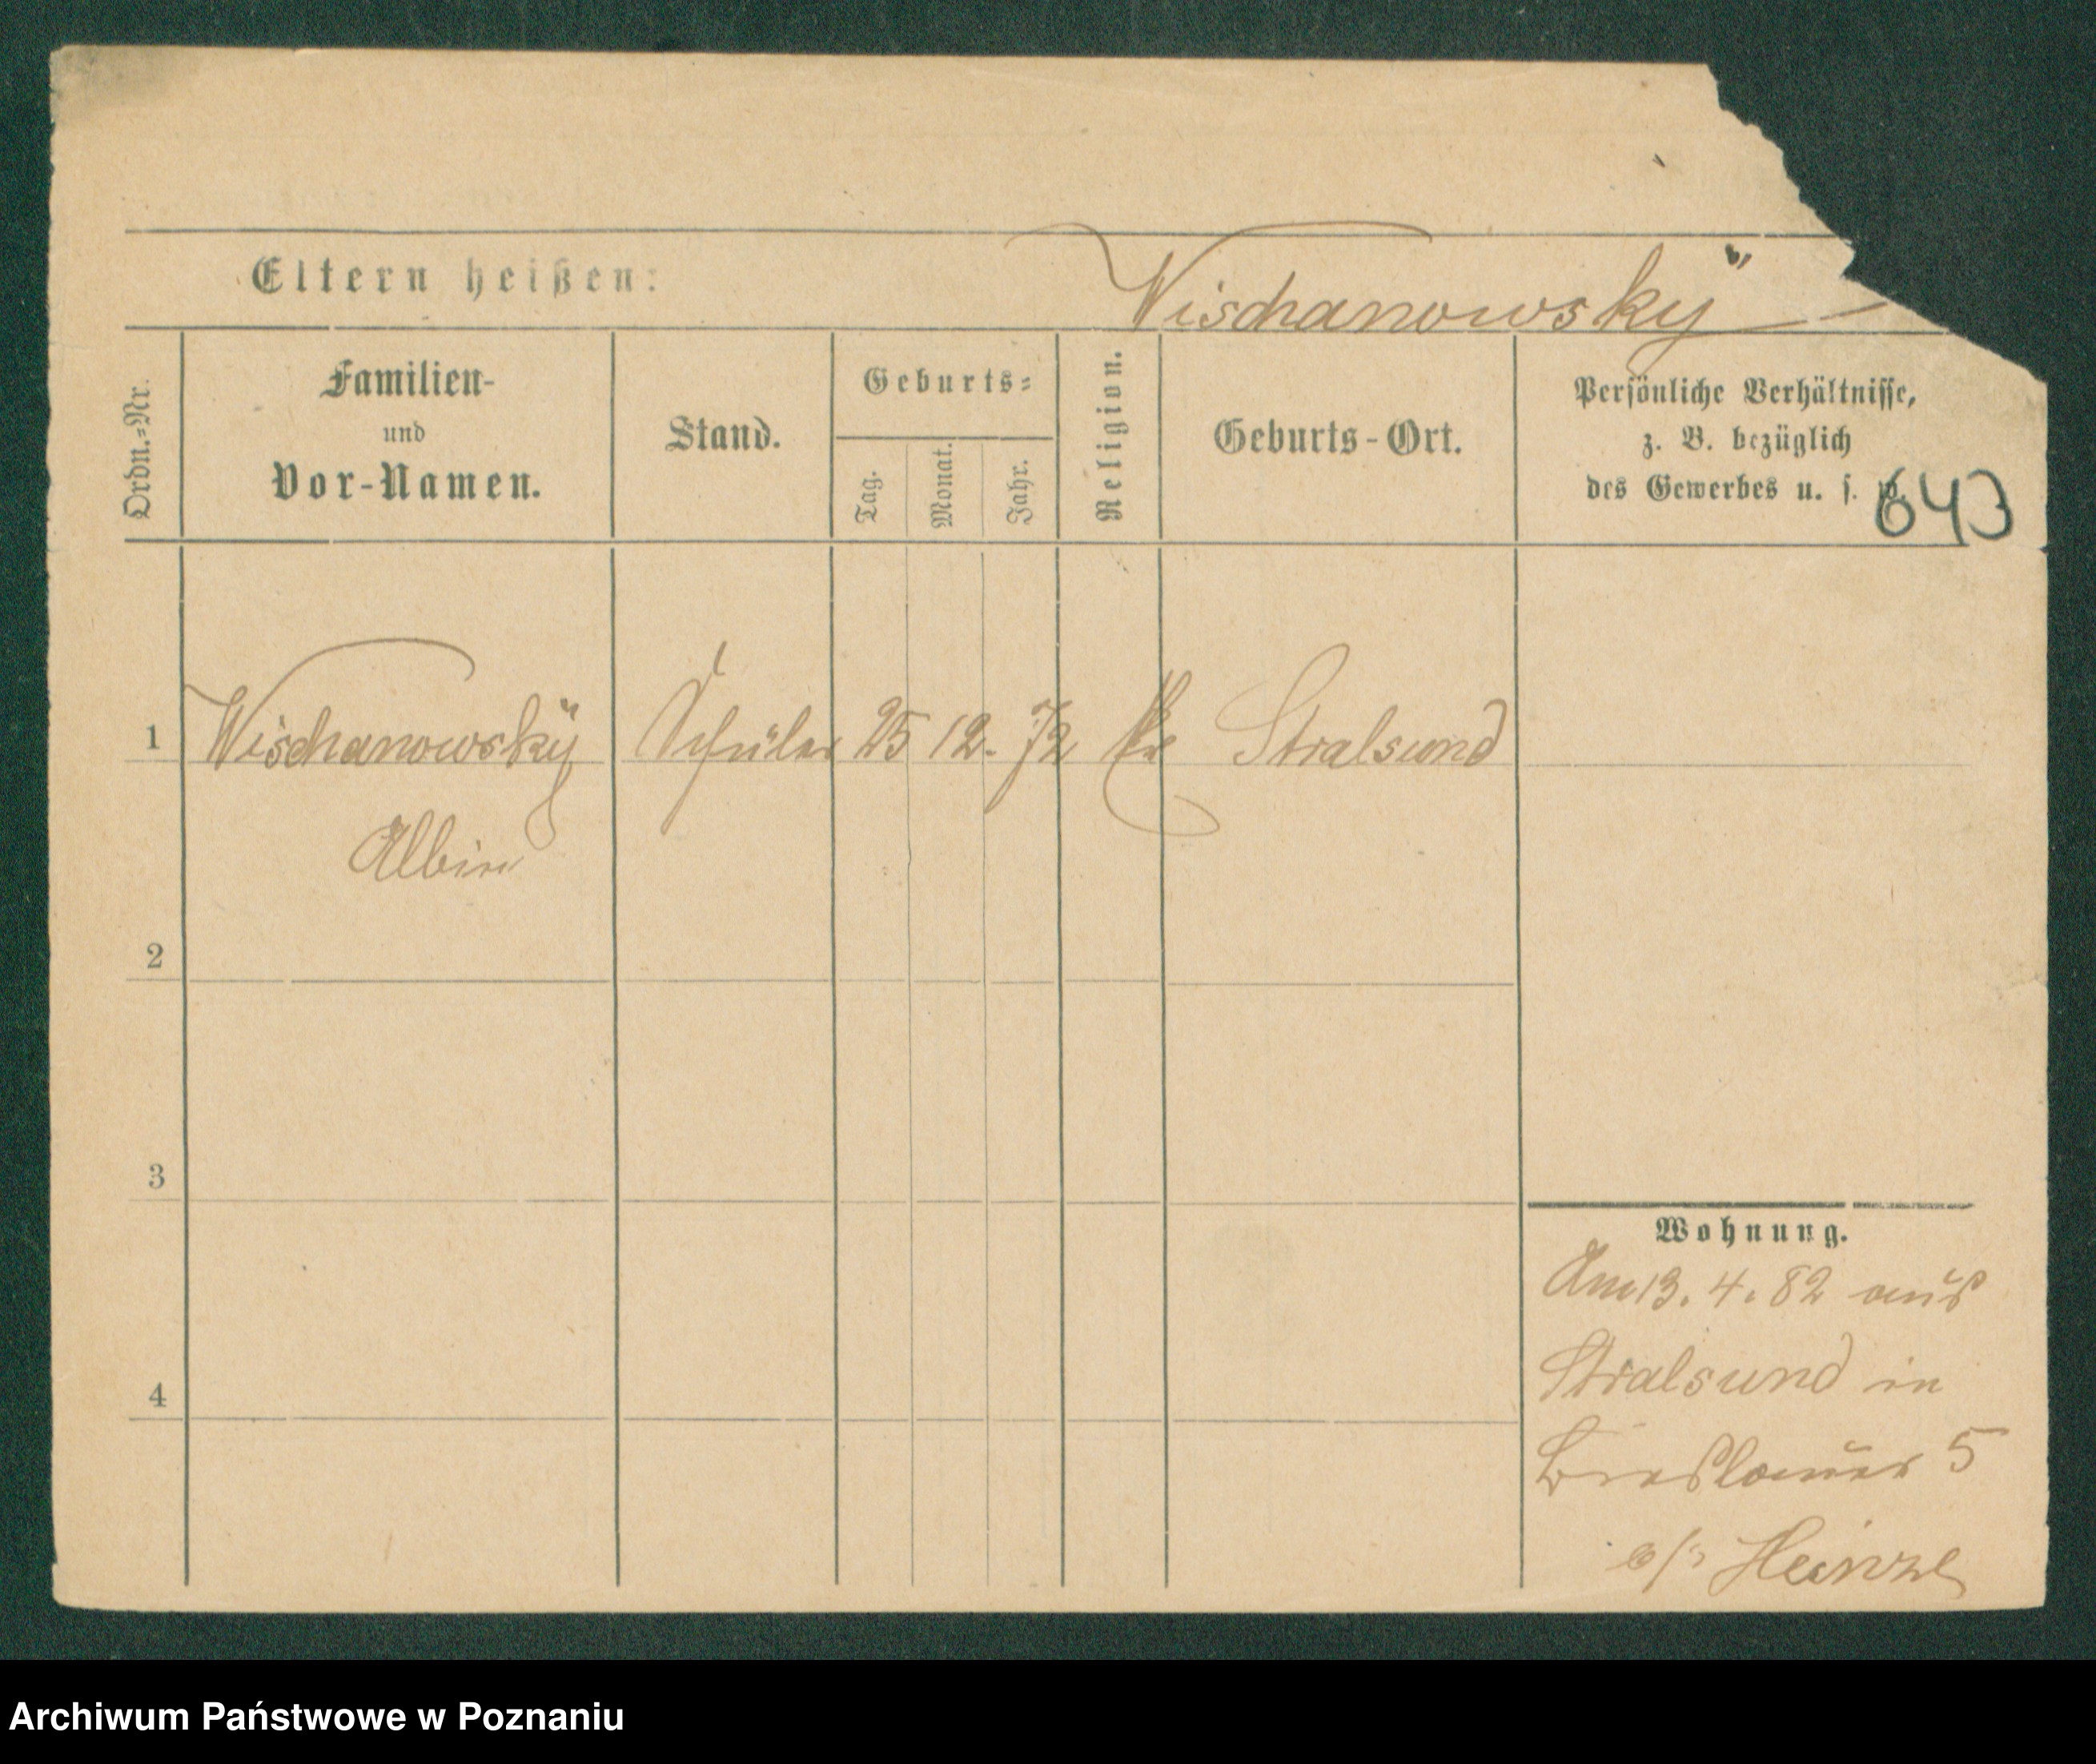 Eltern heißen:
Wischanowskÿ
Ordn.=Nr.
Familien-
und
Vor-Namen.
Stand.
Geburts=
Tag.
Monat.
Jahr.
Religion.
Geburts-Ort.
Persönliche Verhältnisse,
z. B. bezüglich
des Gewerbes u. s. w.
643
1 Wischanowskÿ Schüler 25 12. 72 Stralsund
Albin
2
3
4
Wohnung.
Am 13. 4. 82 aus
Stralsund in
Breslauer 5
b/ Heinze
Archiwum Państwowe w Poznaniu